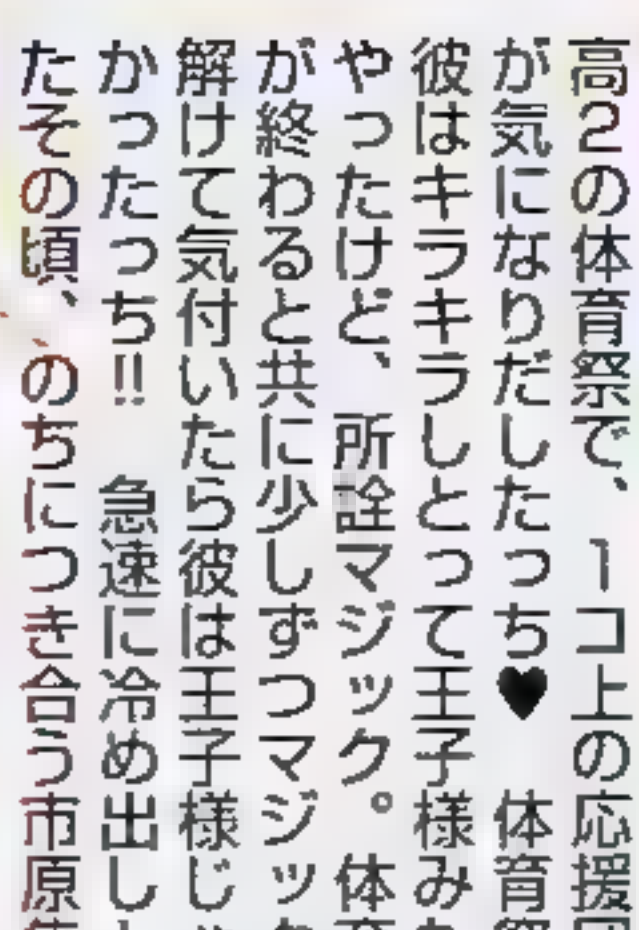 高2の体育祭で、1コ上の応援
が気になりだしたっち♥ 体育
彼はキラキラしとって王子様み
やったけど、所詮マジック。体
が終わると共に少しずつマジッ
解けて気付いたら彼は王子様じ
かったっち!! 急速に冷め出し
たその頃、のちにつき合う市原